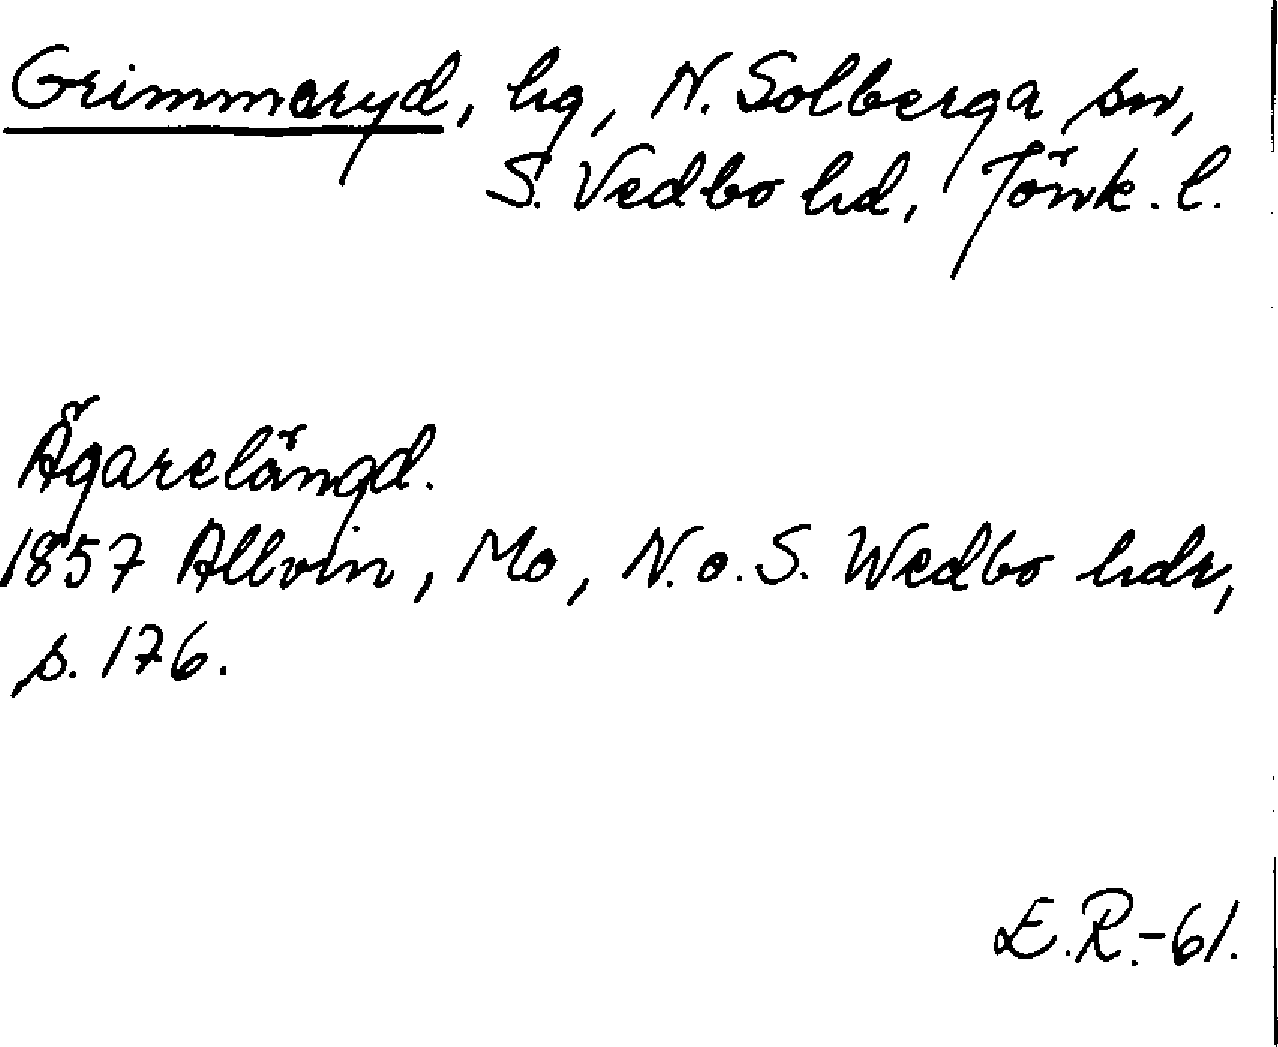 Grimmaryd, hg, N. Solberga sn,
S. Vedbo hd, Jönk. l.
Ägarelängd.
1857 Allvin, Mo, N. o. S. Wedbo hdr,
s. 176.
E.R.-61.